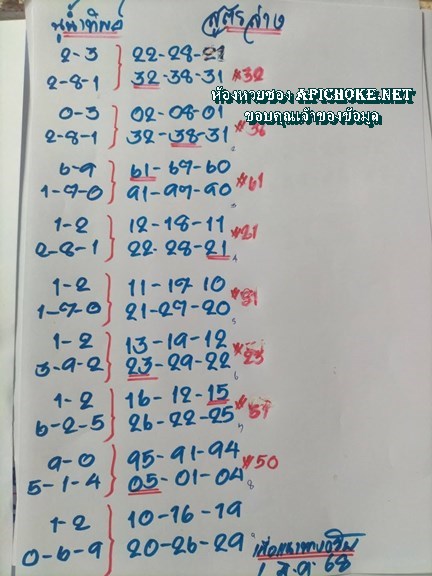 สูตรล่าง
2-3 22-28-21
2-8-1 32-38-31 #32
ห้องหวยซอง APICHOKE.NET
ขอบคุณเจ้าของข้อมูล
0-3 02-08-01
2-8-1 32-38-31 #38
6-9 61-67-60
1-7-0 91-97-90 #61
1-2 12-18-11
2-8-1 22-28-21 #21
1-2 11-17-10
1-7-0 21-27-20
1-2 13-19-12
3-9-2 23-29-22 #23
1-2 16-12-15
6-2-5 26-22-25 #51
9-0 95-91-94
5-1-4 05-01-04 #50
1-2 10-16-19
0-6-9 20-26-29
68